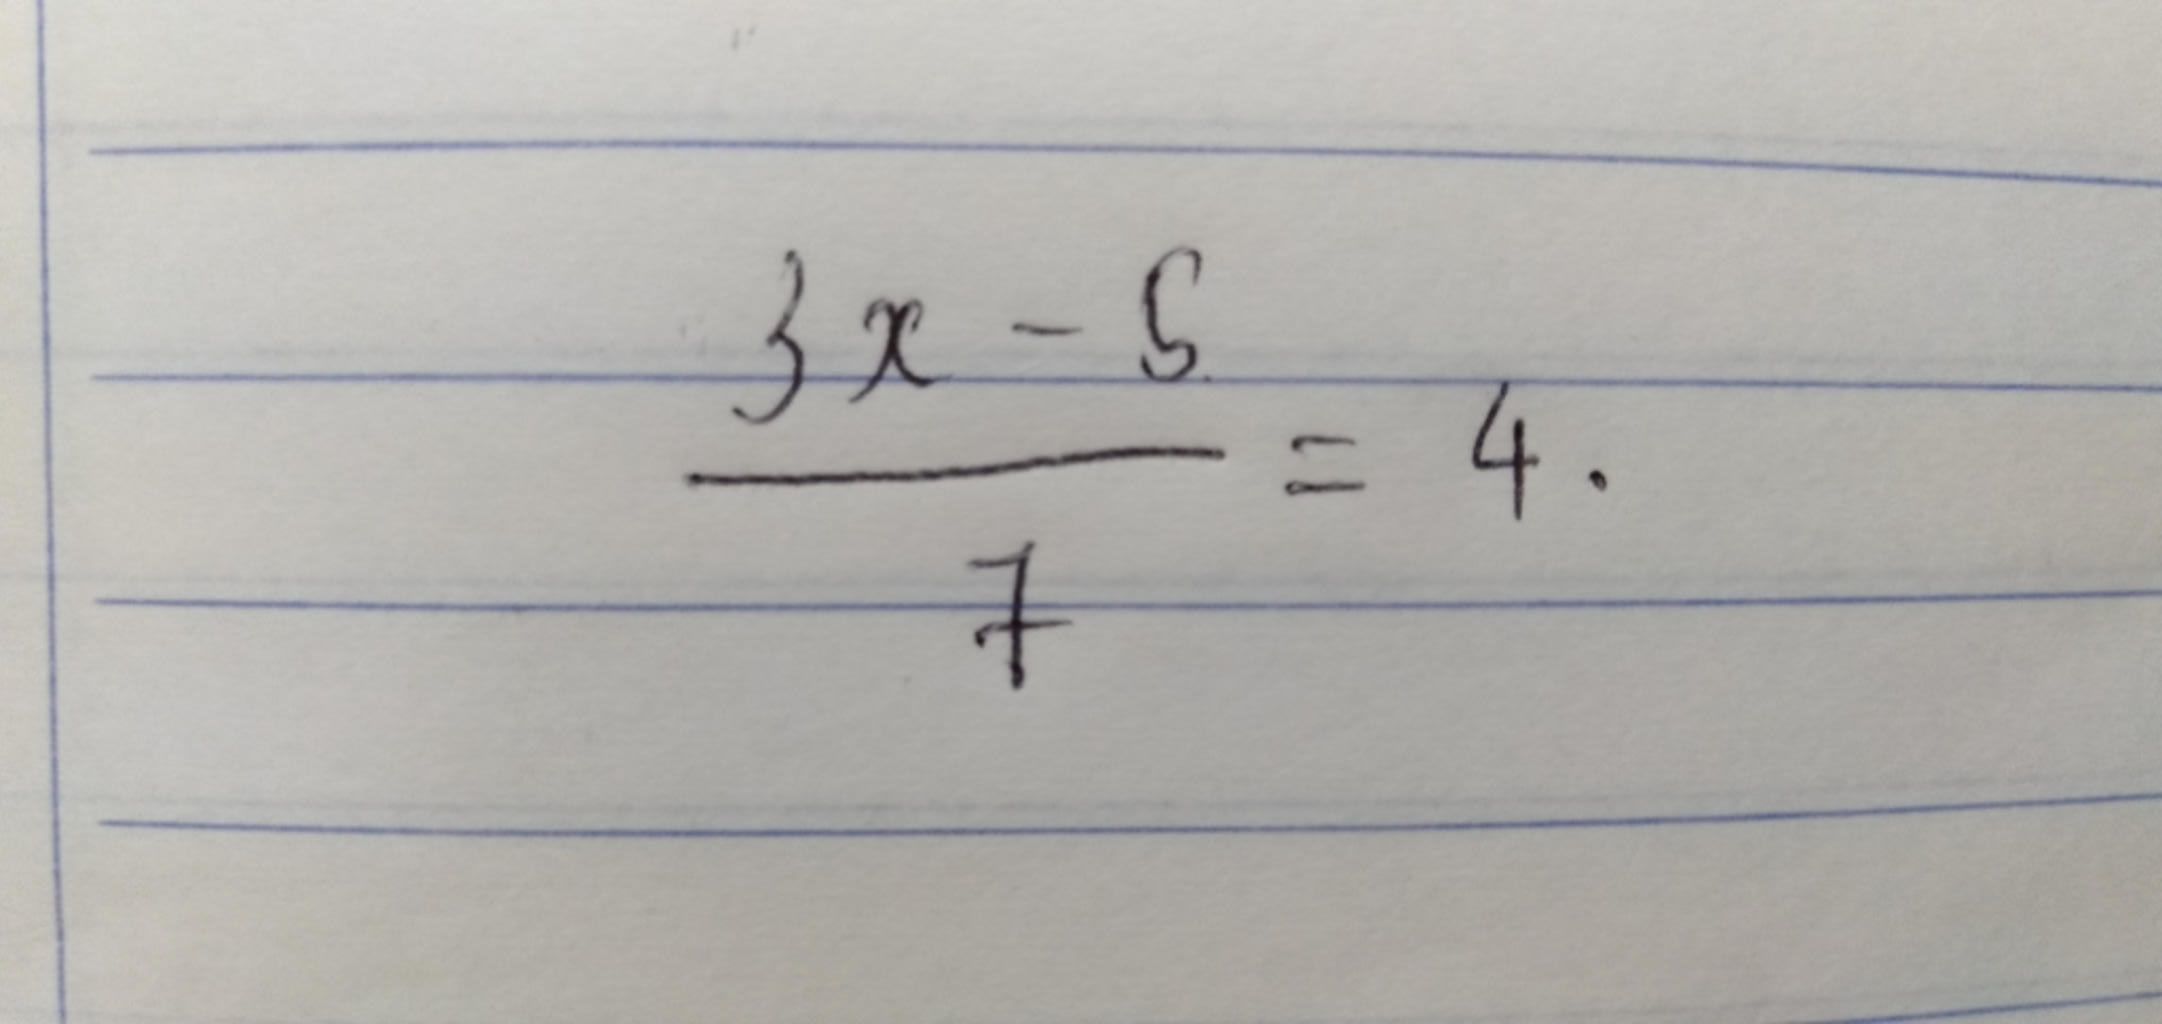 (3x - 5)/7 = 4.